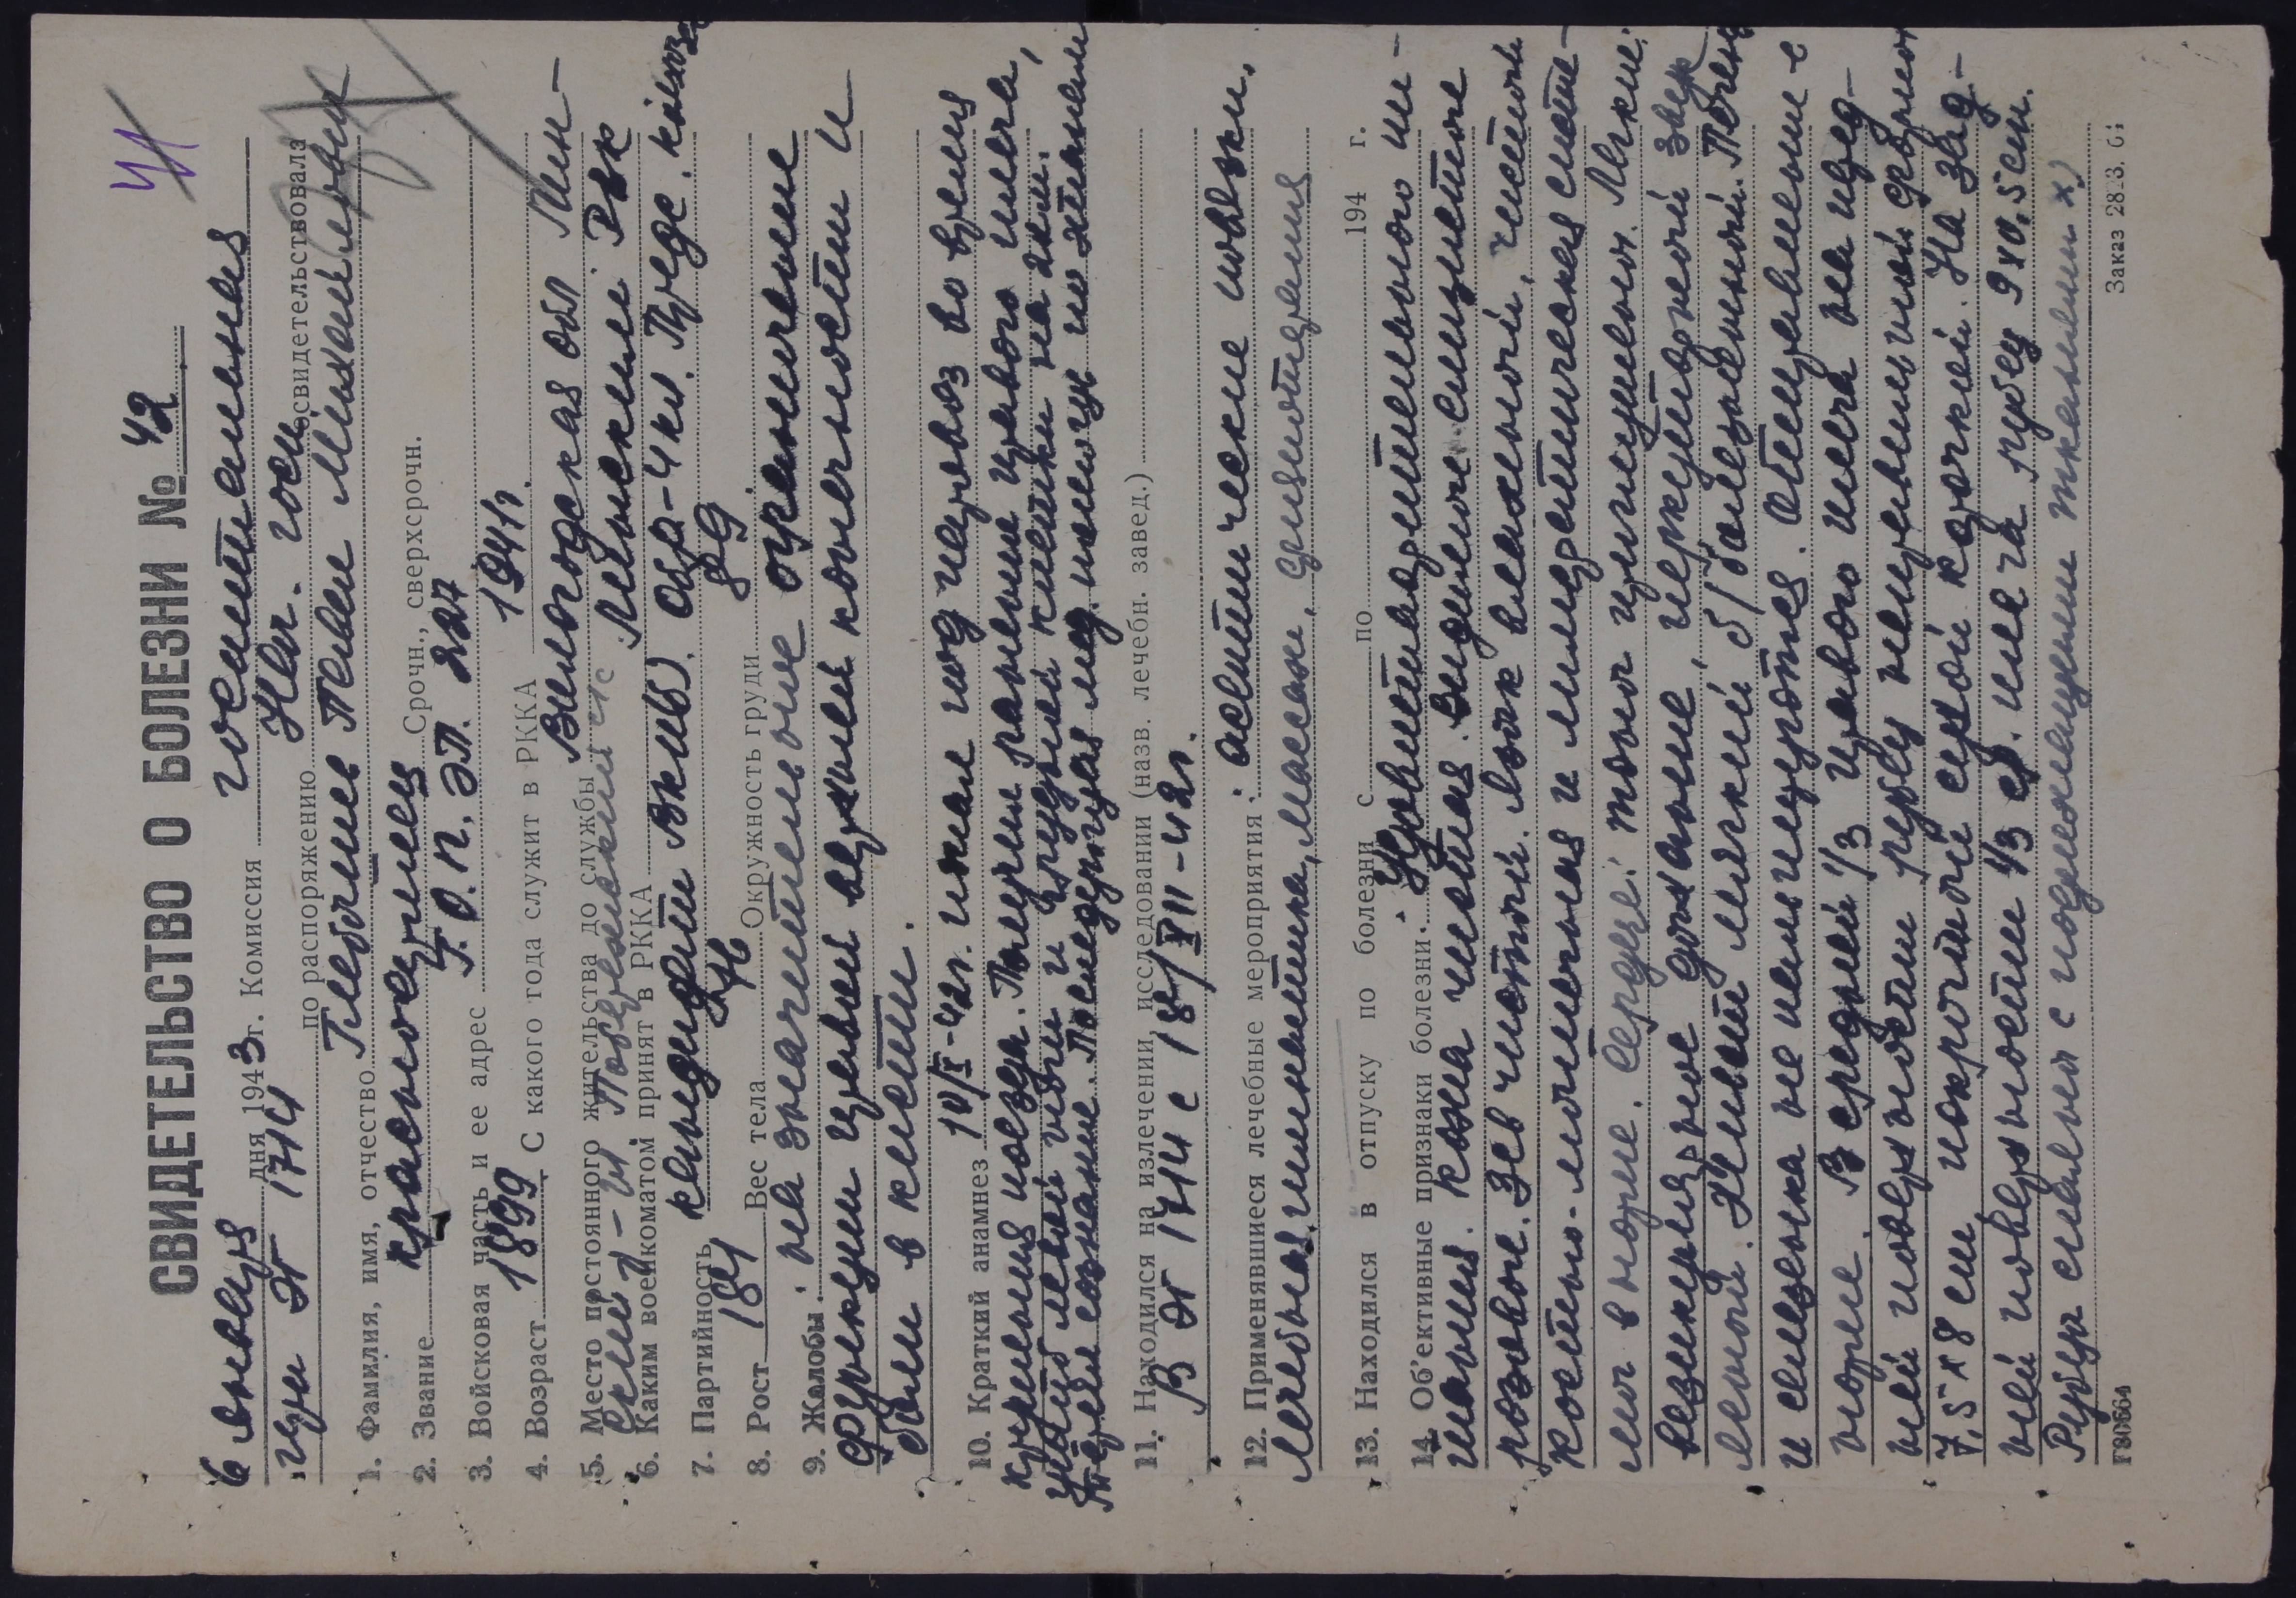 41
СВИДЕТЕЛЬСТВО О БОЛЕЗНИ № 42
6 января дня 1943 г. Комиссия госпитальная
при ЭГ 1714 по распоряжению Нач. госп. освидетельствовала
1. Фамилия, имя, отчество
2. Звание красноармеец Срочн., сверхсрочн.
3. Войсковая часть и ее адрес Г.О.П. ЭП. 227
4. Возраст 1899 С какого года служит в РККА 1941г.
5. Место постоянного жительства до службы Вологодская обл
6. Каким военкоматом принят в РККА РВК
7. Партийность кандидат ВКП(б). Обр-4 кл. Пред. колхоза
8. Рост 184 Вес тела 76 Окружность груди 89
9. Жалобы: на значительное ограничение
функции правой верхней конечности и
боли в кисти.
10. Краткий анамнез 10/X-42г. попал под паровоз во время
крушения поезда. Получил ранение правого плеча,
ушиб левой ноги и грудной клетки
Терял сознание. Последующая мед. помощь по этапам
11. Находился на излечении, исследовании (назв. лечебн. завед.)
В ЭГ 1714 с 18/XII-42г.
12. Применявшиеся лечебные мероприятия: асептические повязки,
лечебная гимнастика, массаж,
13. Находился в отпуску по болезни с по 194 г.
14. Об'ективные признаки болезни: Удовлетворительного пи-
тания. Кожа чистая. Видимые слизистые
розовые. Зев чистый. Язык влажный, чистый
Костно-мышечная и лимфатическая систе-
мы в норме. Сердце: тоны приглушены. Легкие:
везикулярное дыхание, перкуторный звук
легочный. Живот мягкий б/болезненный. Печень
и селезенка не пальпируются. Отправления в
норме. В средней 1/3 правого плеча на перед-
ней поверхности рубец неправильной формы
7,5 х 8 см покрытый сухой корочкой. На зад-
ней поверхности 1/3 ср. плеча рубец 9х0,5см.
Рубцы спаяны с подлежащими тканями х)
Г80664
Заказ 28.3.